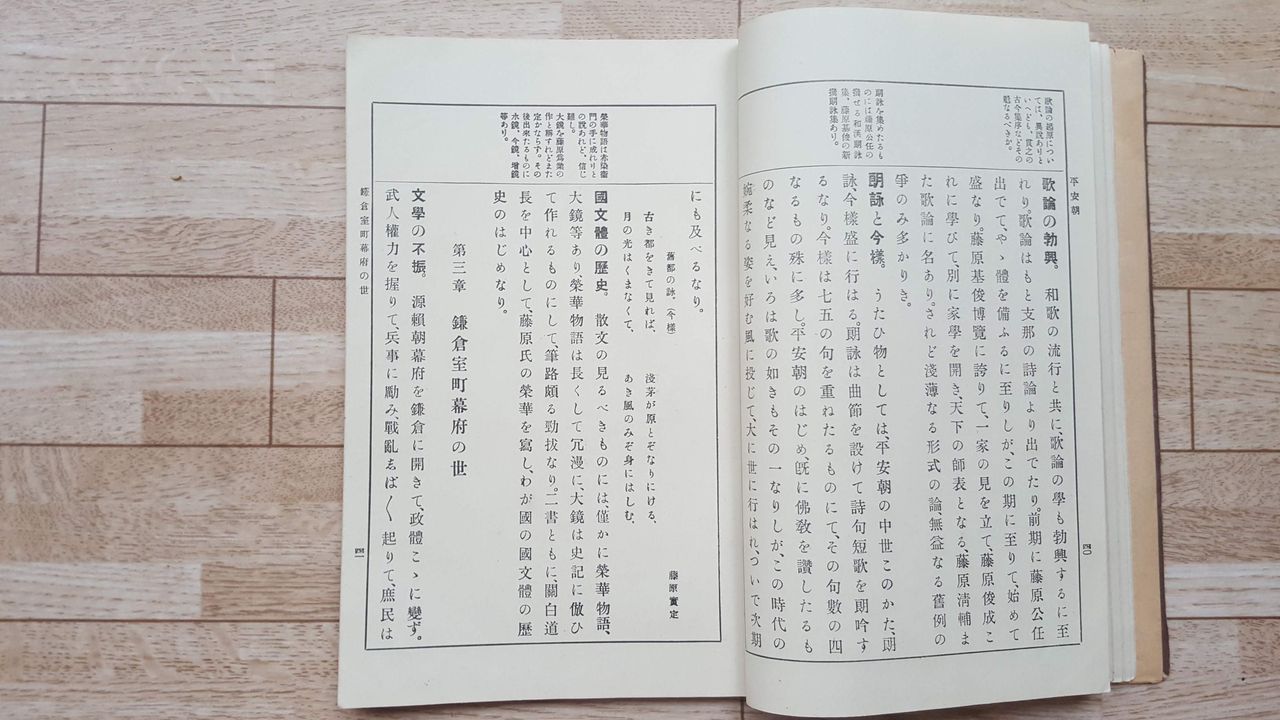 平安朝
歌論の起原につい
ては、異説ありと
いへども、貫之の
古今集序などその
魁なるべきか。
朗詠を集めたるも
のには藤原公任の
撰せる和漢朗詠
集、藤原基俊の新
撰朗詠集あり。
歌論の勃興。 和歌の流行と共に、歌論の學も勃興するに至
れり。歌論はもと支那の詩論より出でたり。前期に藤原公任
出でて、やゝ體を備ふるに至りしが、この期に至りて、始めて
盛なり。藤原基俊博覽に誇りて、一家の見を立て、藤原俊成こ
れに學びて、別に家學を開き、天下の師表となる。藤原清輔ま
た歌論に名あり。されど淺薄なる形式の論、無益なる舊例の
爭のみ多かりき。
朗詠と今樣。 うたひ物としては、平安朝の中世このかた、朗
詠、今樣盛に行はる。朗詠は曲節を設けて詩句短歌を朗吟す
るなり。今樣は七五の句を重ねたるものにて、その句數の四
なるもの殊に多し。平安朝のはじめ、既に佛敎を讚したるも
のなど見え、いろは歌の如きもその一なりしが、この時代の
婉柔なる姿を好む風に投じて、大に世に行はれ、ついで次期
四〇
榮華物語は赤染衞
門の手に成れりと
の說あれど、信じ
難し。
大鏡を藤原爲業の
作と稱すれどまた
定かならず。その
後出來たるものに
水鏡、今鏡、增鏡
等あり。
にも及べるなり。
舊都の詠。(今樣) 藤原實定
古き都をきて見れば、 淺茅が原とぞなりにける、
月の光はくまなくて、 あき風のみぞ身にはしむ、
國文體の歷史。 散文の見るべきものには、僅かに榮華物語、
大鏡等あり、榮華物語は長くして冗漫に、大鏡は史記に倣ひ
て作れるものにして筆路頗る勁拔なり。二書ともに關白道
長を中心として、藤原氏の榮華を寫し、わが國の國文體の歷
史のはじめなり。
第三章 鎌倉室町幕府の世
文學の不振。 源賴朝幕府を鎌倉に開きて、政體こゝに變ず。
武人權力を握りて、兵事に勵み、戰亂しば〳〵起りて、庶民は
鎌倉室町幕府の世
四一